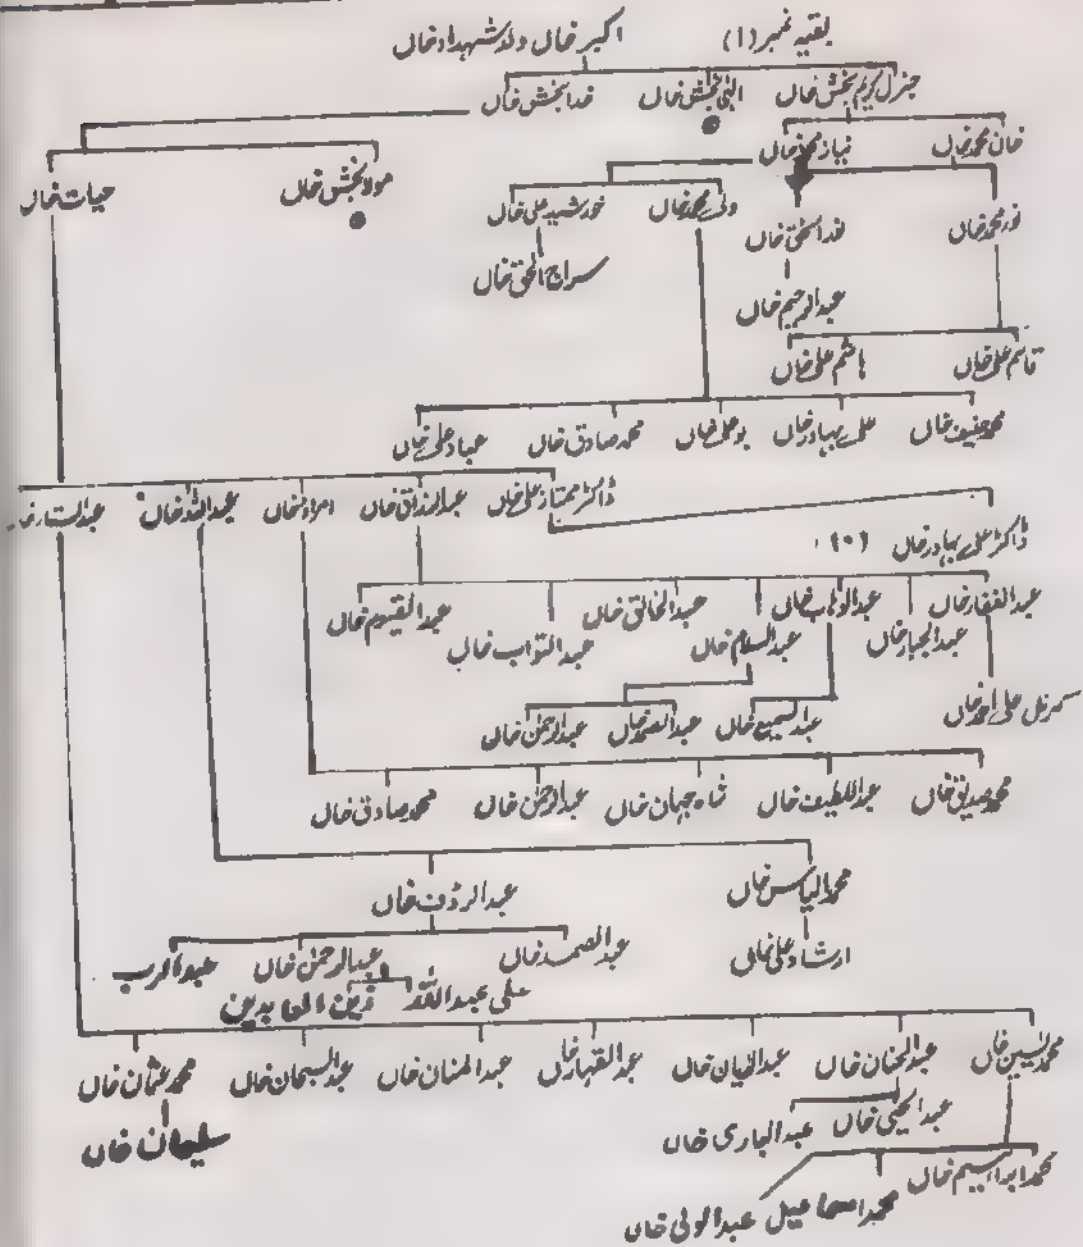 بقیہ نمبر (۱) اکبر خاں ولد شہداد خاں
جنرل کریم بخش خاں الٰہی بخش خاں خدا بخش خاں
خان محمد خاں نیاز محمد خاں مولا بخش خاں حیات خاں
نور محمد خاں فدا الحق خاں ولی محمد خاں خورشید علی خاں
سراج الحق خاں
عبدالرحیم خاں
قاسم علی خاں ہاشم علی خاں
محمد حنیف خاں علی بہادر خاں بو علی خاں محمد صادق خاں عباد علی خاں
ڈاکٹر ممتاز علی خاں عبدالرزاق خاں امراؤ خاں عبداللہ خاں عبدالستار خاں
ڈاکٹر علی بہادر خاں (۵)
عبدالغفار خاں عبدالوہاب خاں عبدالخالق خاں عبدالقیوم خاں
عبدالجبار خاں عبدالسلام خاں عبدالتواب خاں
کرنل علی احمد خاں عبدالسمیع خاں عبدالصمد خاں عبدالرحمٰن خاں
محمد صدیق خاں عبداللطیف خاں شاہ جہان خاں عبدالرحمٰن خاں محمد صادق خاں
محمد الیاس خاں عبدالرؤف خاں
ارشاد علی خاں عبدالصمد خاں عبدالرحمٰن خاں عبدالرب
علی عبداللہ زین العابدین
محمد یٰسین خاں عبدالحنان خاں عبدالدیان خاں عبدالقہار خاں عبدالمنان خاں عبدالسبحان خاں محمد عثمان خاں
عبدالحیٔ خاں عبدالباری خاں سلیمان خاں
محمد ابراہیم خاں محمد اسماعیل عبدالولی خاں